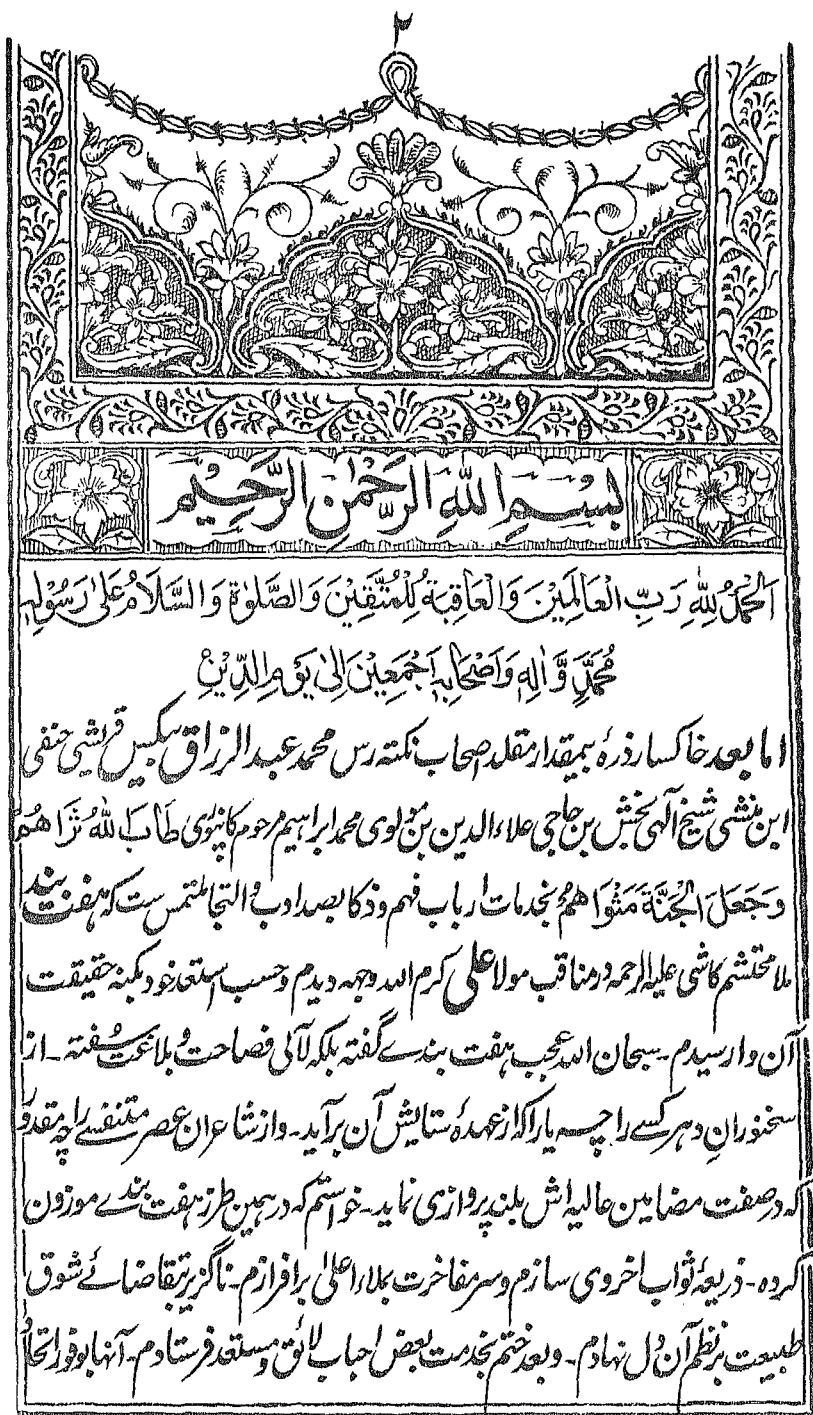 ۲
بِسْمِ اللهِ الرَّحْمٰنِ الرَّحِيْمِ
اَلْحَمْدُ لِلّٰهِ رَبِّ الْعَالَمِيْنَ وَالْعَاقِبَةُ لِلْمُتَّقِيْنَ وَالصَّلوٰةُ وَالسَّلَامُ عَلىٰ رَسُوْلِهٖ
مُحَمَّدٍ وَّاٰلِهٖ وَاَصْحَابِهٖ اَجْمَعِيْنَ اِلىٰ يَوْمِ الدِّيْنِ
اما بعد خاکسار ذرۂ بیمقدار مقلد اصحاب نکته رس محمد عبد الرزاق بیکس قریشی حنفی
ابن منشی شیخ آلهی بخش بن حاجی علاء الدین بن مولوی محمد ابراهیم مرحوم کانپوری طَابَ اللهُ ثَرَاهُمْ
وَجَعَلَ الْجَنَّةَ مَثْوَاهُمْ بخدمات ارباب فهم و ذکا بصد ادب و التجا ملتمس ست که هفت بند
ملا محتشم کاشی علیه الرحمه در مناقب مولا علی کرم الله وجهه دیدم و حسب استعداد خود بکنه حقیقت
آن وارسیدم ۔ سبحان الله عجب هفت بندے گفته بلکه لآلی فصاحت و بلاغت سُفته ۔ از
سخنورانِ دهر کسے را چه یارا که از عهدۀ ستایش آن برآید ۔ و از شاعران عصر متنفسے را چه مقدور
که در صفت مضامین عالیه اش بلند پروازی نماید ۔ خواستم که در همین طرز هفت بندے موزون
کرده ۔ ذریعۀ ثواب اخروی سازم و سر مفاخرت بملاء اعلیٰ برافرازم ۔ ناگزیر بتقاضائے شوق
طبیعت بر نظم آن دل نهادم ۔ و بعد ختم بخدمت بعض احباب لائق و مستعد فرستادم ۔ آنها بوفور اتحاد